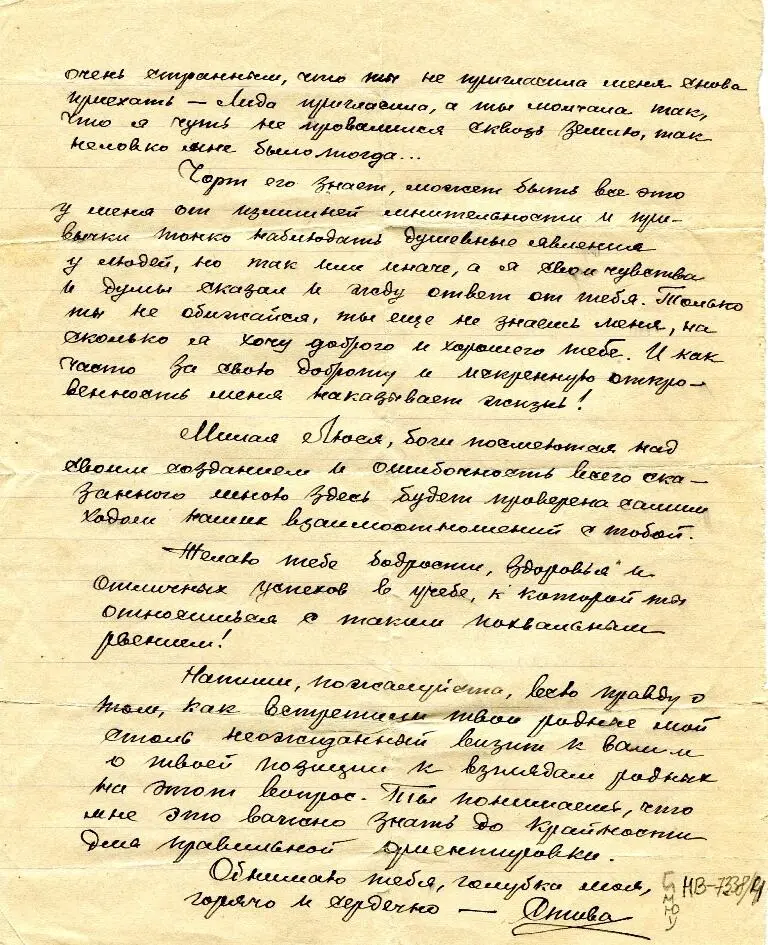 очень странным, что ты не пригласила меня снова
приехать — Лида пригласила, а ты молчала так,
что я чуть не провалился сквозь землю, так
неловко мне было тогда...
Чорт его знает, может быть все это
у меня от излишней мнительности и при-
вычки тонко наблюдать душевные явления
у людей, но так или иначе, а я свои чувства
и думы сказал и жду ответ от тебя. Только
ты не обижайся, ты еще не знаешь меня, на
сколько я хочу доброго и хорошего тебе. И как
часто за свою доброту и искреннюю откро-
венность меня наказывает жизнь!
Милая Люся, боги посмеются над
своим созданием и ошибочность всего ска-
занного мною здесь будет проверена самим
ходом наших взаимоотношений с тобой.
Желаю тебе бодрости, здоровья и
отличных успехов в учебе, к которой ты
относишься с таким похвальным
рвением!
Напиши, пожалуйста, всю правду о
том, как встретили твои родные мой
столь неожиданный визит к вам и
о твоей позиции к взглядам родных
на этот вопрос. Ты понимаешь, что
мне это важно знать до крайности
для правильной ориентировки.
Обнимаю тебя, голубка моя,
горячо и сердечно —
НВ-7338/4